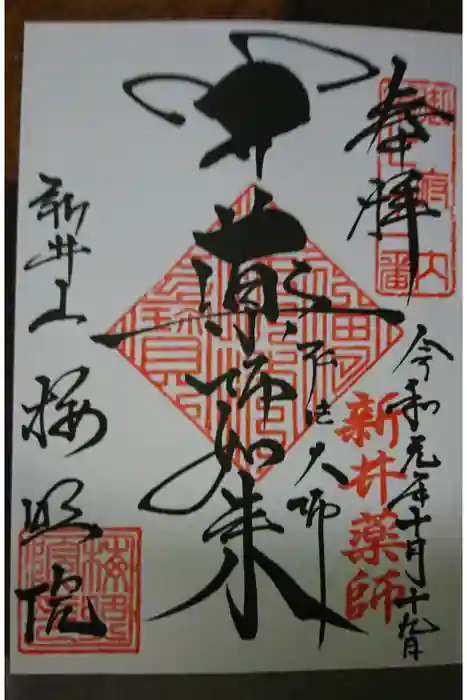 奉拝
令和元年十月十九日
新井薬師
弘法大師
薬師如来
新井山 梅照院